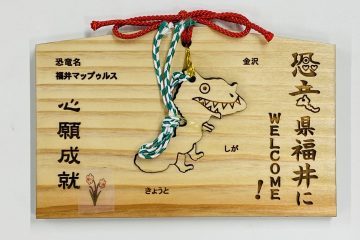 恐竜県福井に
WELCOME!
金沢
恐竜名
福井マップゥルス
しが
きょうと
心願成就